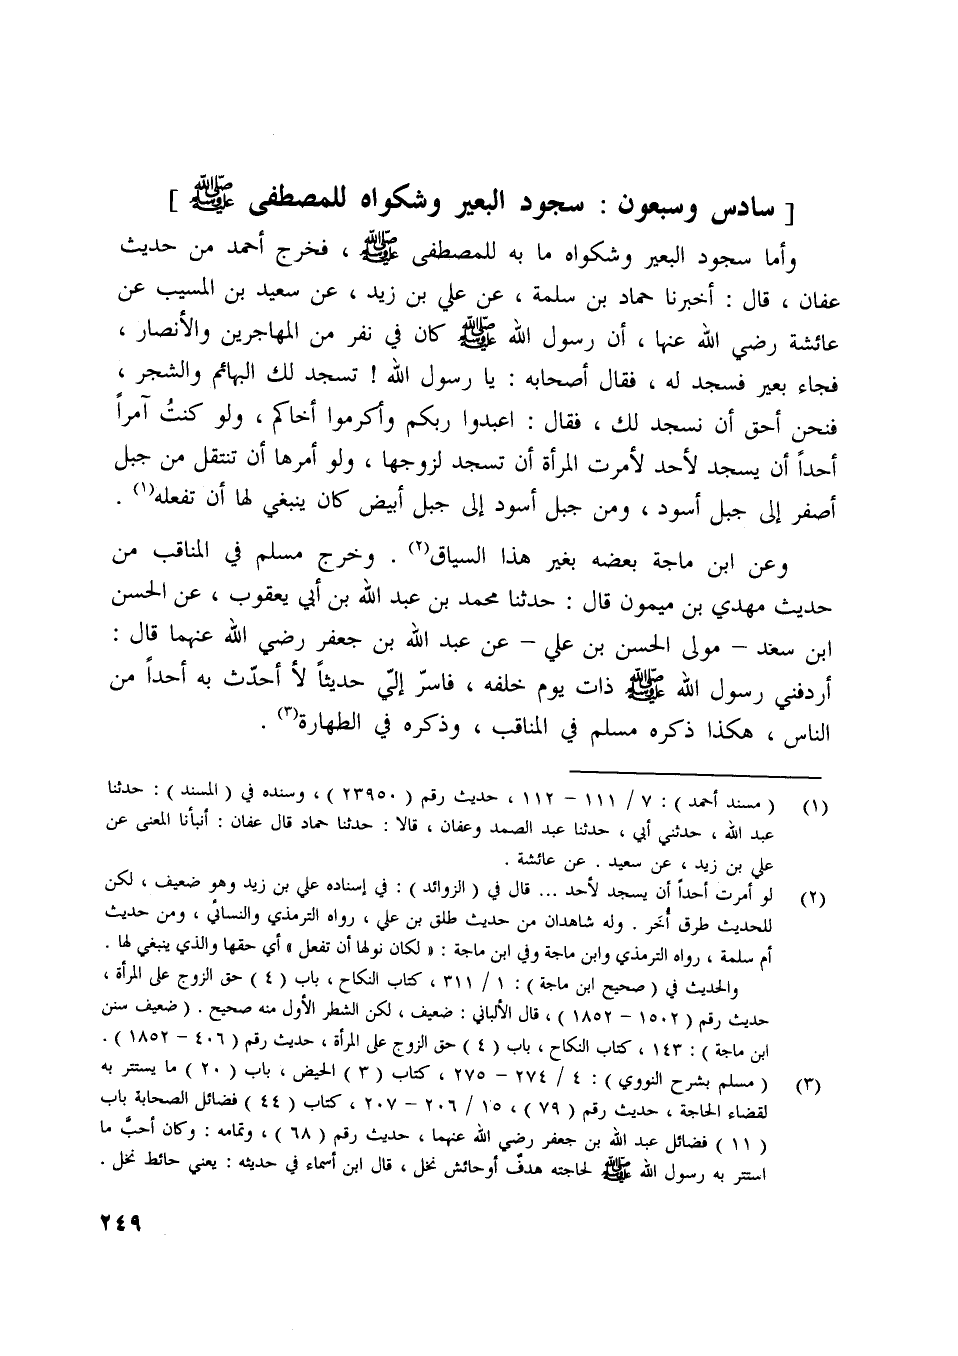 [ سادس وسبعون : سجود البعير وشكواه للمصطفى ﷺ ]
وأما سجود البعير وشكواه ما به للمصطفى ﷺ ، فخرج أحمد من حديث
عفان ، قال : أخبرنا حماد بن سلمة ، عن علي بن زيد ، عن سعيد بن المسيب عن
عائشة رضي الله عنها ، أن رسول الله ﷺ كان في نفر من المهاجرين والأنصار ،
فجاء بعير فسجد له ، فقال أصحابه : يا رسول الله ! تسجد لك البهائم والشجر ،
فنحن أحق أن نسجد لك ، فقال : اعبدوا ربكم وأكرموا أخاكم ، ولو كنتُ آمراً
أحداً أن يسجد لأحد لأمرت المرأة أن تسجد لزوجها ، ولو أمرها أن تنتقل من جبل
أصفر إلى جبل أسود ، ومن جبل أسود إلى جبل أبيض كان ينبغي لها أن تفعله(١) .
وعن ابن ماجة بعضه بغير هذا السياق(٢) . وخرج مسلم في المناقب من
حديث مهدي بن ميمون قال : حدثنا محمد بن عبد الله بن أبي يعقوب ، عن الحسن
ابن سعد – مولى الحسن بن علي – عن عبد الله بن جعفر رضي الله عنهما قال :
أردفني رسول الله ﷺ ذات يوم خلفه ، فاسرّ إليّ حديثاً لأ أحدّث به أحداً من
الناس ، هكذا ذكره مسلم في المناقب ، وذكره في الطهارة(٣) .
(١) ( مسند أحمد ) : ٧ / ١١١ – ١١٢ ، حديث رقم ( ٢٣٩٥٠ ) ، وسنده في ( المسند ) : حدثنا
عبد الله ، حدثني أبي ، حدثنا عبد الصمد وعفان ، قالا : حدثنا حماد قال عفان : أنبأنا المعنى عن
علي بن زيد ، عن سعيد . عن عائشة .
(٢) لو أمرت أحداً أن يسجد لأحد ... قال في ( الزوائد ) : في إسناده علي بن زيد وهو ضعيف ، لكن
للحديث طرق أُخَر . وله شاهدان من حديث طلق بن علي ، رواه الترمذي والنسائي ، ومن حديث
أم سلمة ، رواه الترمذي وابن ماجة وفي ابن ماجة : « لكان نولها أن تفعل » أي حقها والذي ينبغي لها .
والحديث في ( صحيح ابن ماجة ) : ١ / ٣١١ ، كتاب النكاح ، باب ( ٤ ) حق الزوج على المرأة ،
حديث رقم ( ١٥٠٢ – ١٨٥٢ ) ، قال الألباني : ضعيف ، لكن الشطر الأول منه صحيح . ( ضعيف سنن
ابن ماجة ) : ١٤٣ ، كتاب النكاح ، باب ( ٤ ) حق الزوج على المرأة ، حديث رقم ( ٤٠٦ – ١٨٥٢ ) .
(٣) ( مسلم بشرح النووي ) : ٤ / ٢٧٤ – ٢٧٥ ، كتاب ( ٣ ) الحيض ، باب ( ٢٠ ) ما يستتر به
لقضاء الحاجة ، حديث رقم ( ٧٩ ) ، ١٥ / ٢٠٦ – ٢٠٧ ، كتاب ( ٤٤ ) فضائل الصحابة باب
( ١١ ) فضائل عبد الله بن جعفر رضي الله عنهما ، حديث رقم ( ٦٨ ) ، وتمامه : وكان أحبَّ ما
استتر به رسول الله ﷺ لحاجته هدفٌ أوحائش نخل ، قال ابن أسماء في حديثه : يعني حائط نخل .
٢٤٩